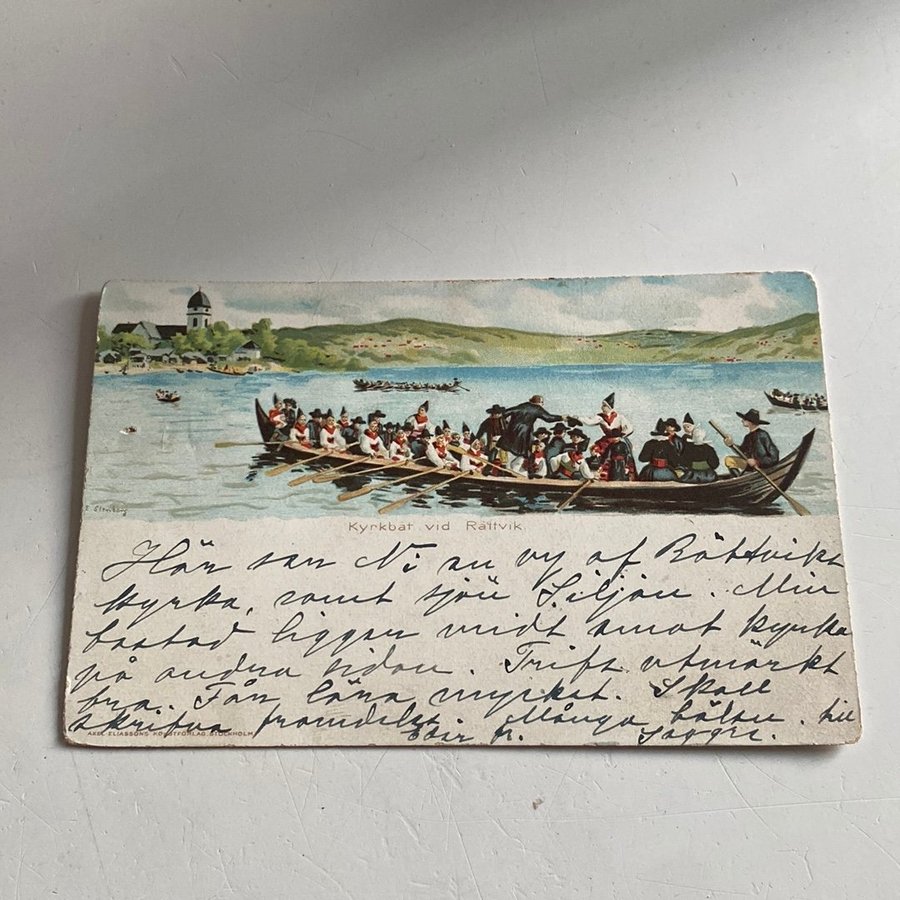 Kyrkbåt vid Rättvik
Här sen Ni en vy af Rättvikt
kyrka, samt sjön Siljan. Min
bostad ligger midt emot kyrka
på andra sidan. Trifs utmärkt
bra. Får lära mycket. Skall
skrifva framdeles. Många hälsn. till
Eder fr.
AXEL ELIASSONS KONSTFÖRLAG. STOCKHOLM